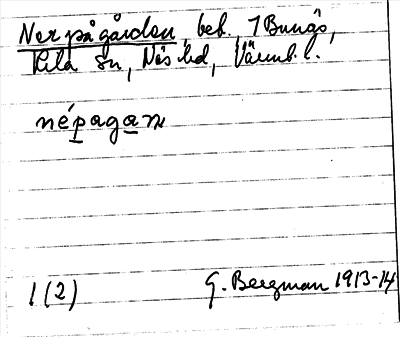 Ner på gården, beb. 1 Bungs,
Kila sn, Näs hd, Värml. l.
népagaɲ
1 (2) G. Bergman 1913-14